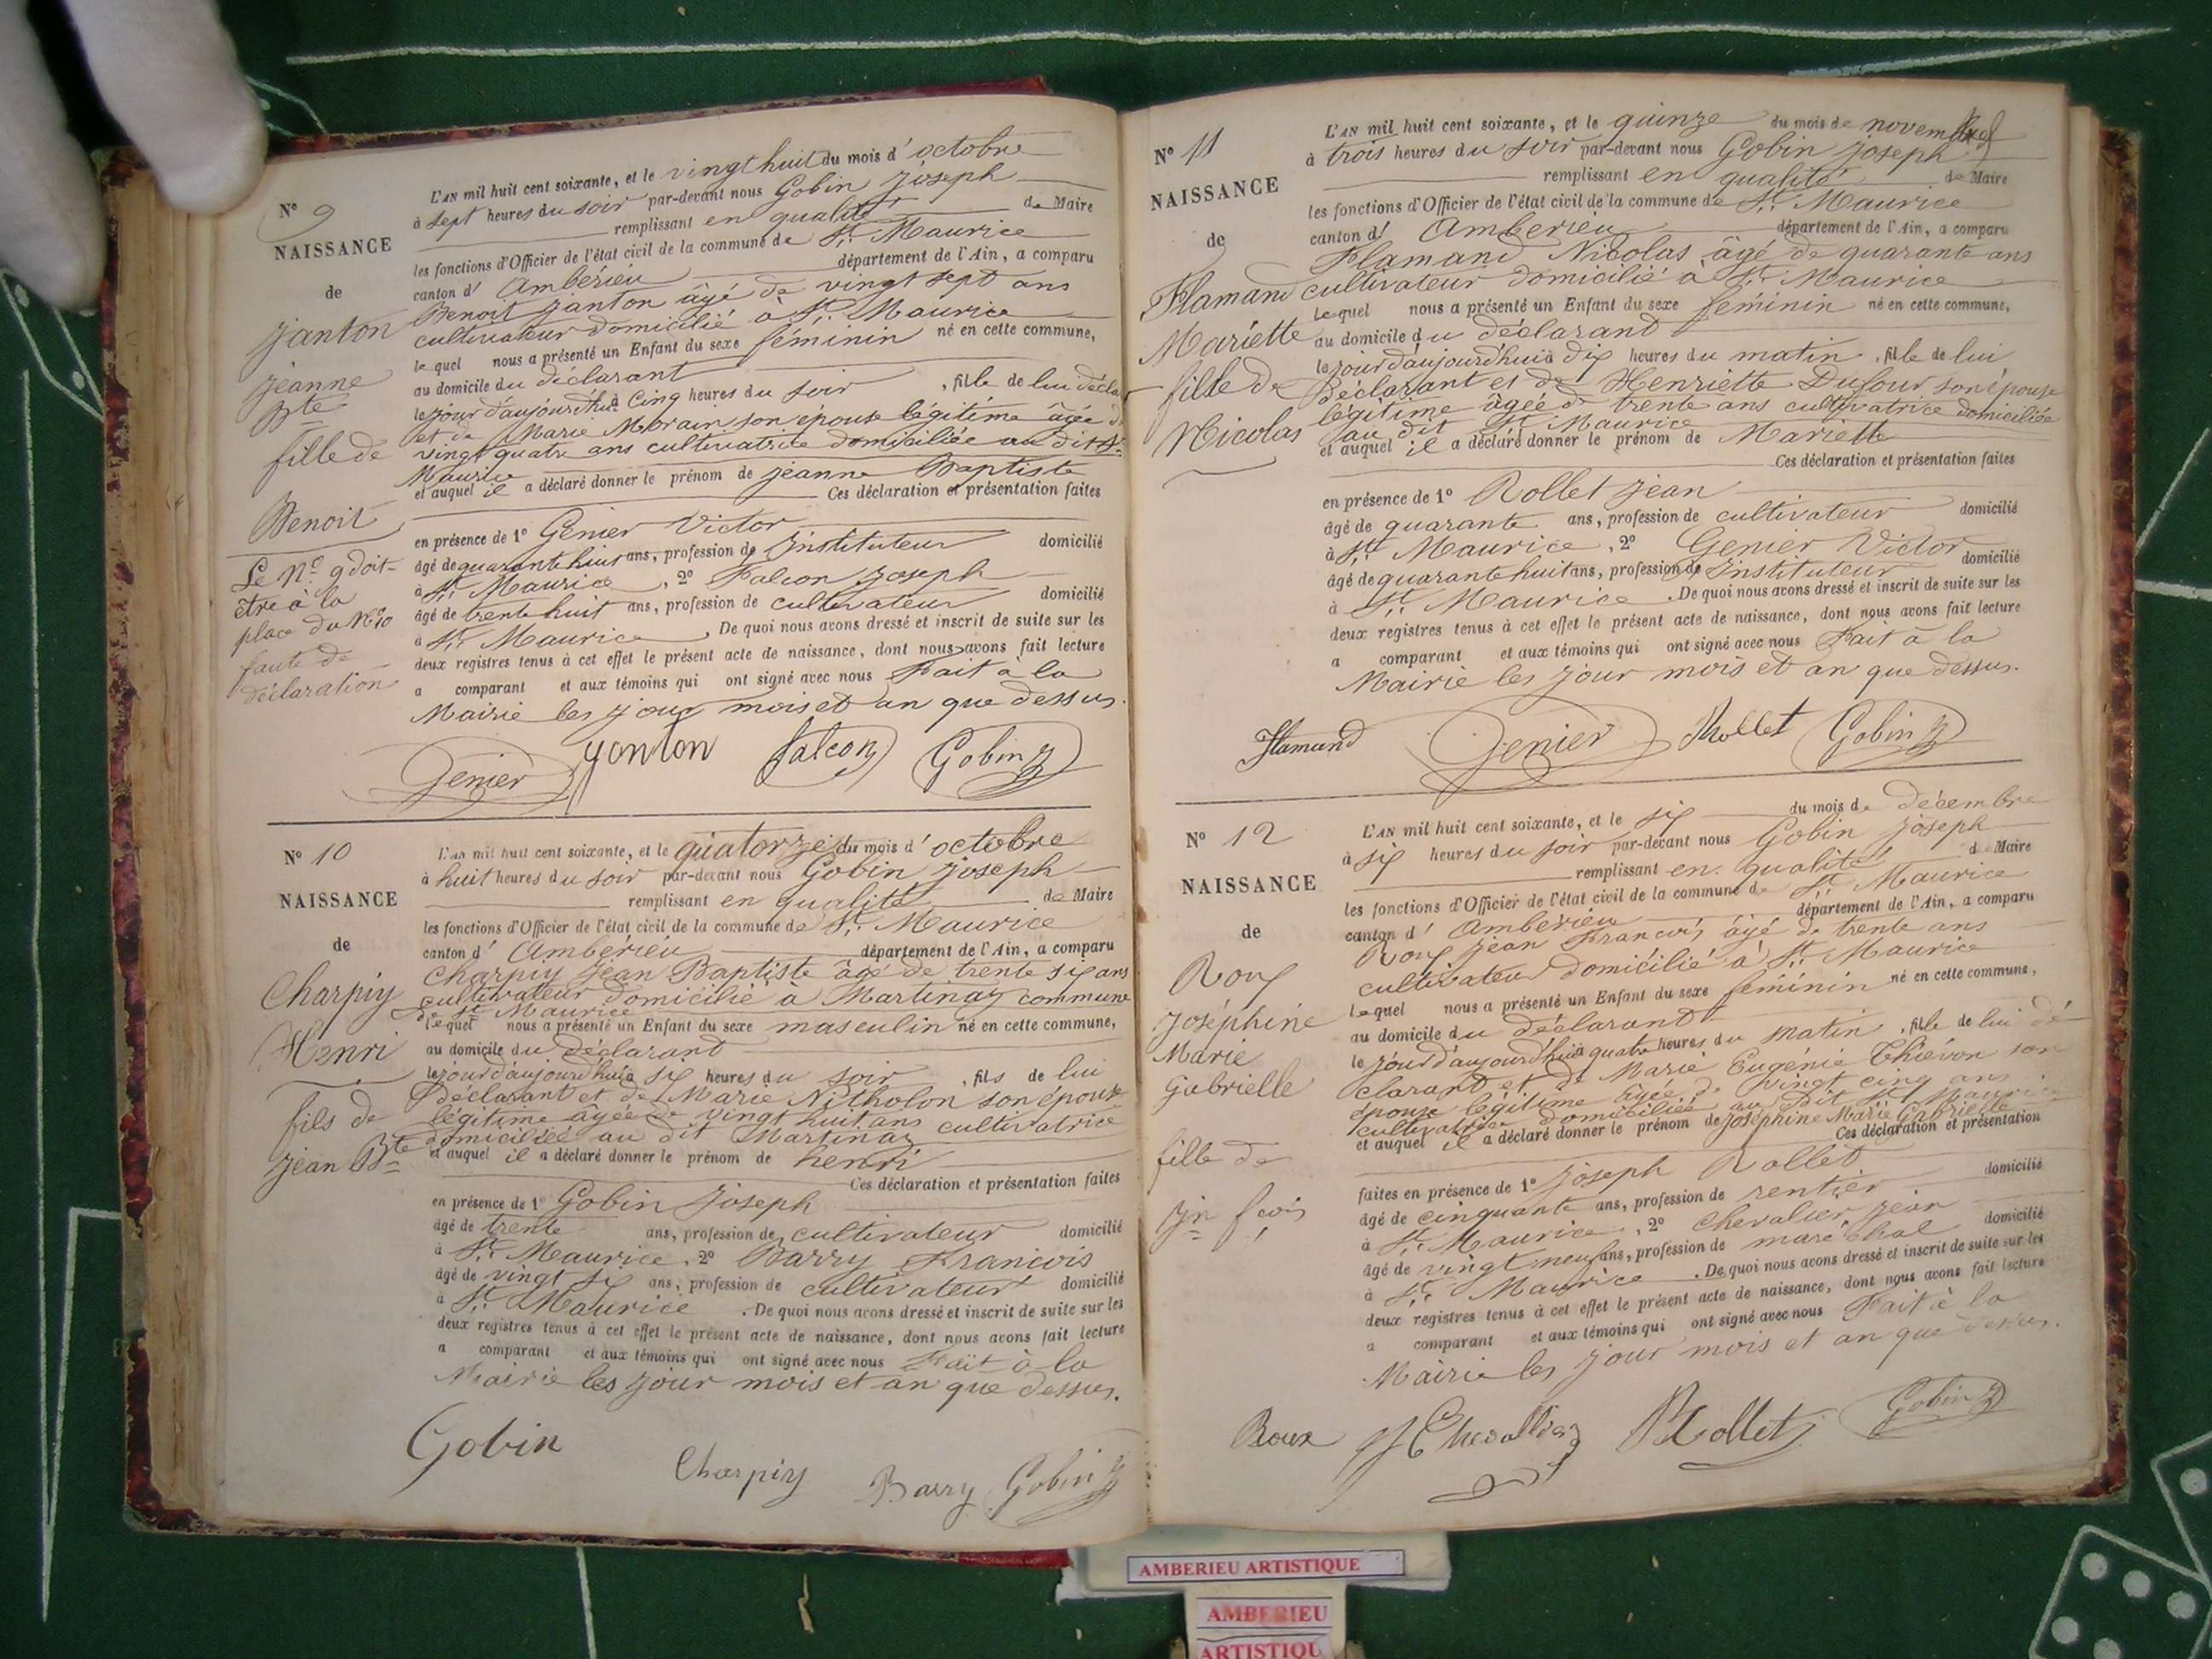 N° 9
NAISSANCE
de
Janton
Jeanne
Bte
fille de
Benoit
Le N° 9 doit
être à la
place du N° 10
faute de
déclaration
L'AN mil huit cent soixante, et le vingt huit du mois d'octobre
à sept heures du soir par-devant nous Gobin Joseph
remplissant en qualité de Maire
les fonctions d'Officier de l'état civil de la commune de St. Maurice
canton d' Ambérieu département de l'Ain, a comparu
Benoit Janton âgé de vingt sept ans
cultivateur domicilié à St. Maurice
lequel nous a présenté un Enfant du sexe féminin né en cette commune,
au domicile du déclarant
le jour d'aujourd'hui à cinq heures du soir, fille de lui décla
et de Marie Morain son épouse légitime âgée d
vingt quatre ans cultivatrice domiciliée au dit St.
Maurice
et auquel il a déclaré donner le prénom de jeanne Baptiste
Ces déclaration et présentation faites
en présence de 1° Genier Victor
âgé de quarante huit ans, profession de Instituteur domicilié
à St. Maurice, 2° Falcon Joseph
âgé de trente huit ans, profession de cultivateur domicilié
à St. Maurice. De quoi nous avons dressé et inscrit de suite sur les
deux registres tenus à cet effet le présent acte de naissance, dont nous avons fait lecture
a comparant et aux témoins qui ont signé avec nous Fait à la
Mairie les jour mois et an que dessus.
Genier Janton Falcon Gobin J
N° 10
NAISSANCE
de
Charpiy
Henri
fils de
Jean Bte
L'AN mil huit cent soixante, et le quatorze du mois d'octobre
à huit heures du soir par-devant nous Gobin Joseph
remplissant en qualité de Maire
les fonctions d'Officier de l'état civil de la commune de St. Maurice
canton d' Ambérieu département de l'Ain, a comparu
Charpiy Jean Baptiste âgé de trente six ans
cultivateur domicilié à Martinaz commune
de St Maurice
lequel nous a présenté un Enfant du sexe masculin né en cette commune,
au domicile du déclarant
le jour d'aujourd'hui à six heures du soir, fils de lui
déclarant et de Marie Nitholon son épouse
légitime âgée de vingt huit ans cultivatrice
domiciliée au dit Martinaz
et auquel il a déclaré donner le prénom de henri
Ces déclaration et présentation faites
en présence de 1° Gobin Joseph
âgé de trente ans, profession de cultivateur domicilié
à St. Maurice, 2° Barry Francois
âgé de vingt six ans, profession de cultivateur domicilié
à St. Maurice. De quoi nous avons dressé et inscrit de suite sur les
deux registres tenus à cet effet le présent acte de naissance, dont nous avons fait lecture
a comparant et aux témoins qui ont signé avec nous Fait à la
Mairie les jour mois et an que dessus.
Gobin Charpiy Barry Gobin J
N° 11
NAISSANCE
de
Flamand
Mariette
fille de
Nicolas
L'AN mil huit cent soixante, et le quinze du mois de novembre
à trois heures du soir par-devant nous Gobin Joseph
remplissant en qualité de Maire
les fonctions d'Officier de l'état civil de la commune de St. Maurice
canton d' Amberieu département de l'Ain, a comparu
Flamand Nicolas âgé de quarante ans
cultivateur domicilié à St. Maurice
Lequel nous a présenté un Enfant du sexe féminin né en cette commune,
au domicile du déclarant
le jour d'aujourd'hui à dix heures du matin, fille de lui
Déclarant et de Henriette Dufour son épouse
légitime âgée de trente ans cultivatrice domiciliée
au dit St Maurice
et auquel il a déclaré donner le prénom de Mariette
Ces déclaration et présentation faites
en présence de 1° Rollet Jean
âgé de quarante ans, profession de cultivateur domicilié
à St. Maurice, 2° Genier Victor
âgé de quarante huit ans, profession de Instituteur domicilié
à St. Maurice. De quoi nous avons dressé et inscrit de suite sur les
deux registres tenus à cet effet le présent acte de naissance, dont nous avons fait lecture
a comparant et aux témoins qui ont signé avec nous Fait à la
Mairie les jour mois et an que dessus.
Flamand Genier Rollet Gobin J
N° 12
NAISSANCE
de
Roux
Joséphine
Marie
Gabrielle
fille de
Jn fcois
L'AN mil huit cent soixante, et le six du mois de décembre
à six heures du soir par-devant nous Gobin Joseph
remplissant en qualité de Maire
les fonctions d'Officier de l'état civil de la commune de St. Maurice
canton d' Ambérieu département de l'Ain, a comparu
Roux Jean Francois âgé de trente ans
cultivateur domicilié à St. Maurice
lequel nous a présenté un Enfant du sexe féminin né en cette commune,
au domicile du déclarant
le jour d'aujourd'hui à quatre heures du matin, fille de lui dé
clarant et de Marie Eugénie Thiévon son
épouse légitime âgée de vingt cinq ans
cultivatrice domiciliée au dit St Maurice
et auquel il a déclaré donner le prénom de Joséphine Marie Gabrielle
Ces déclaration et présentation
faites en présence de 1° Joseph Rollet
âgé de cinquante ans, profession de rentier domicilié
à St. Maurice, 2° Chevalier Jean
âgé de vingt neuf ans, profession de maréchal domicilié
à St. Maurice. De quoi nous avons dressé et inscrit de suite sur les
deux registres tenus à cet effet le présent acte de naissance, dont nous avons fait lecture
a comparant et aux témoins qui ont signé avec nous Fait à la
Mairie les jour mois et an que dessus.
Roux Rollet Gobin J
AMBERIEU ARTISTIQUE
AMBERIEU
ARTISTIQU